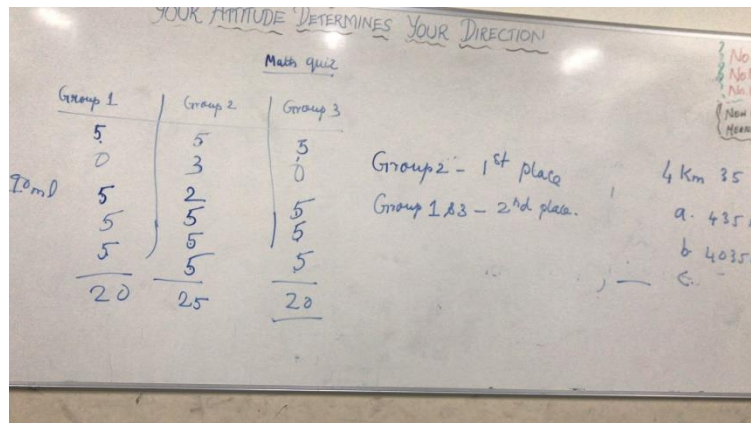 YOUR ATTITUDE DETERMINES YOUR DIRECTION
Math quiz
Group 1 Group 2 Group 3
5 5 5
0 3 0
90ml 5 2 5
5 5 5
5 5
5 5
20 25 20
Group 2 - 1st place
Group 1 & 3 - 2nd place.
4 Km 35
a. 435
b 4035
c.
No
No.
No.
New